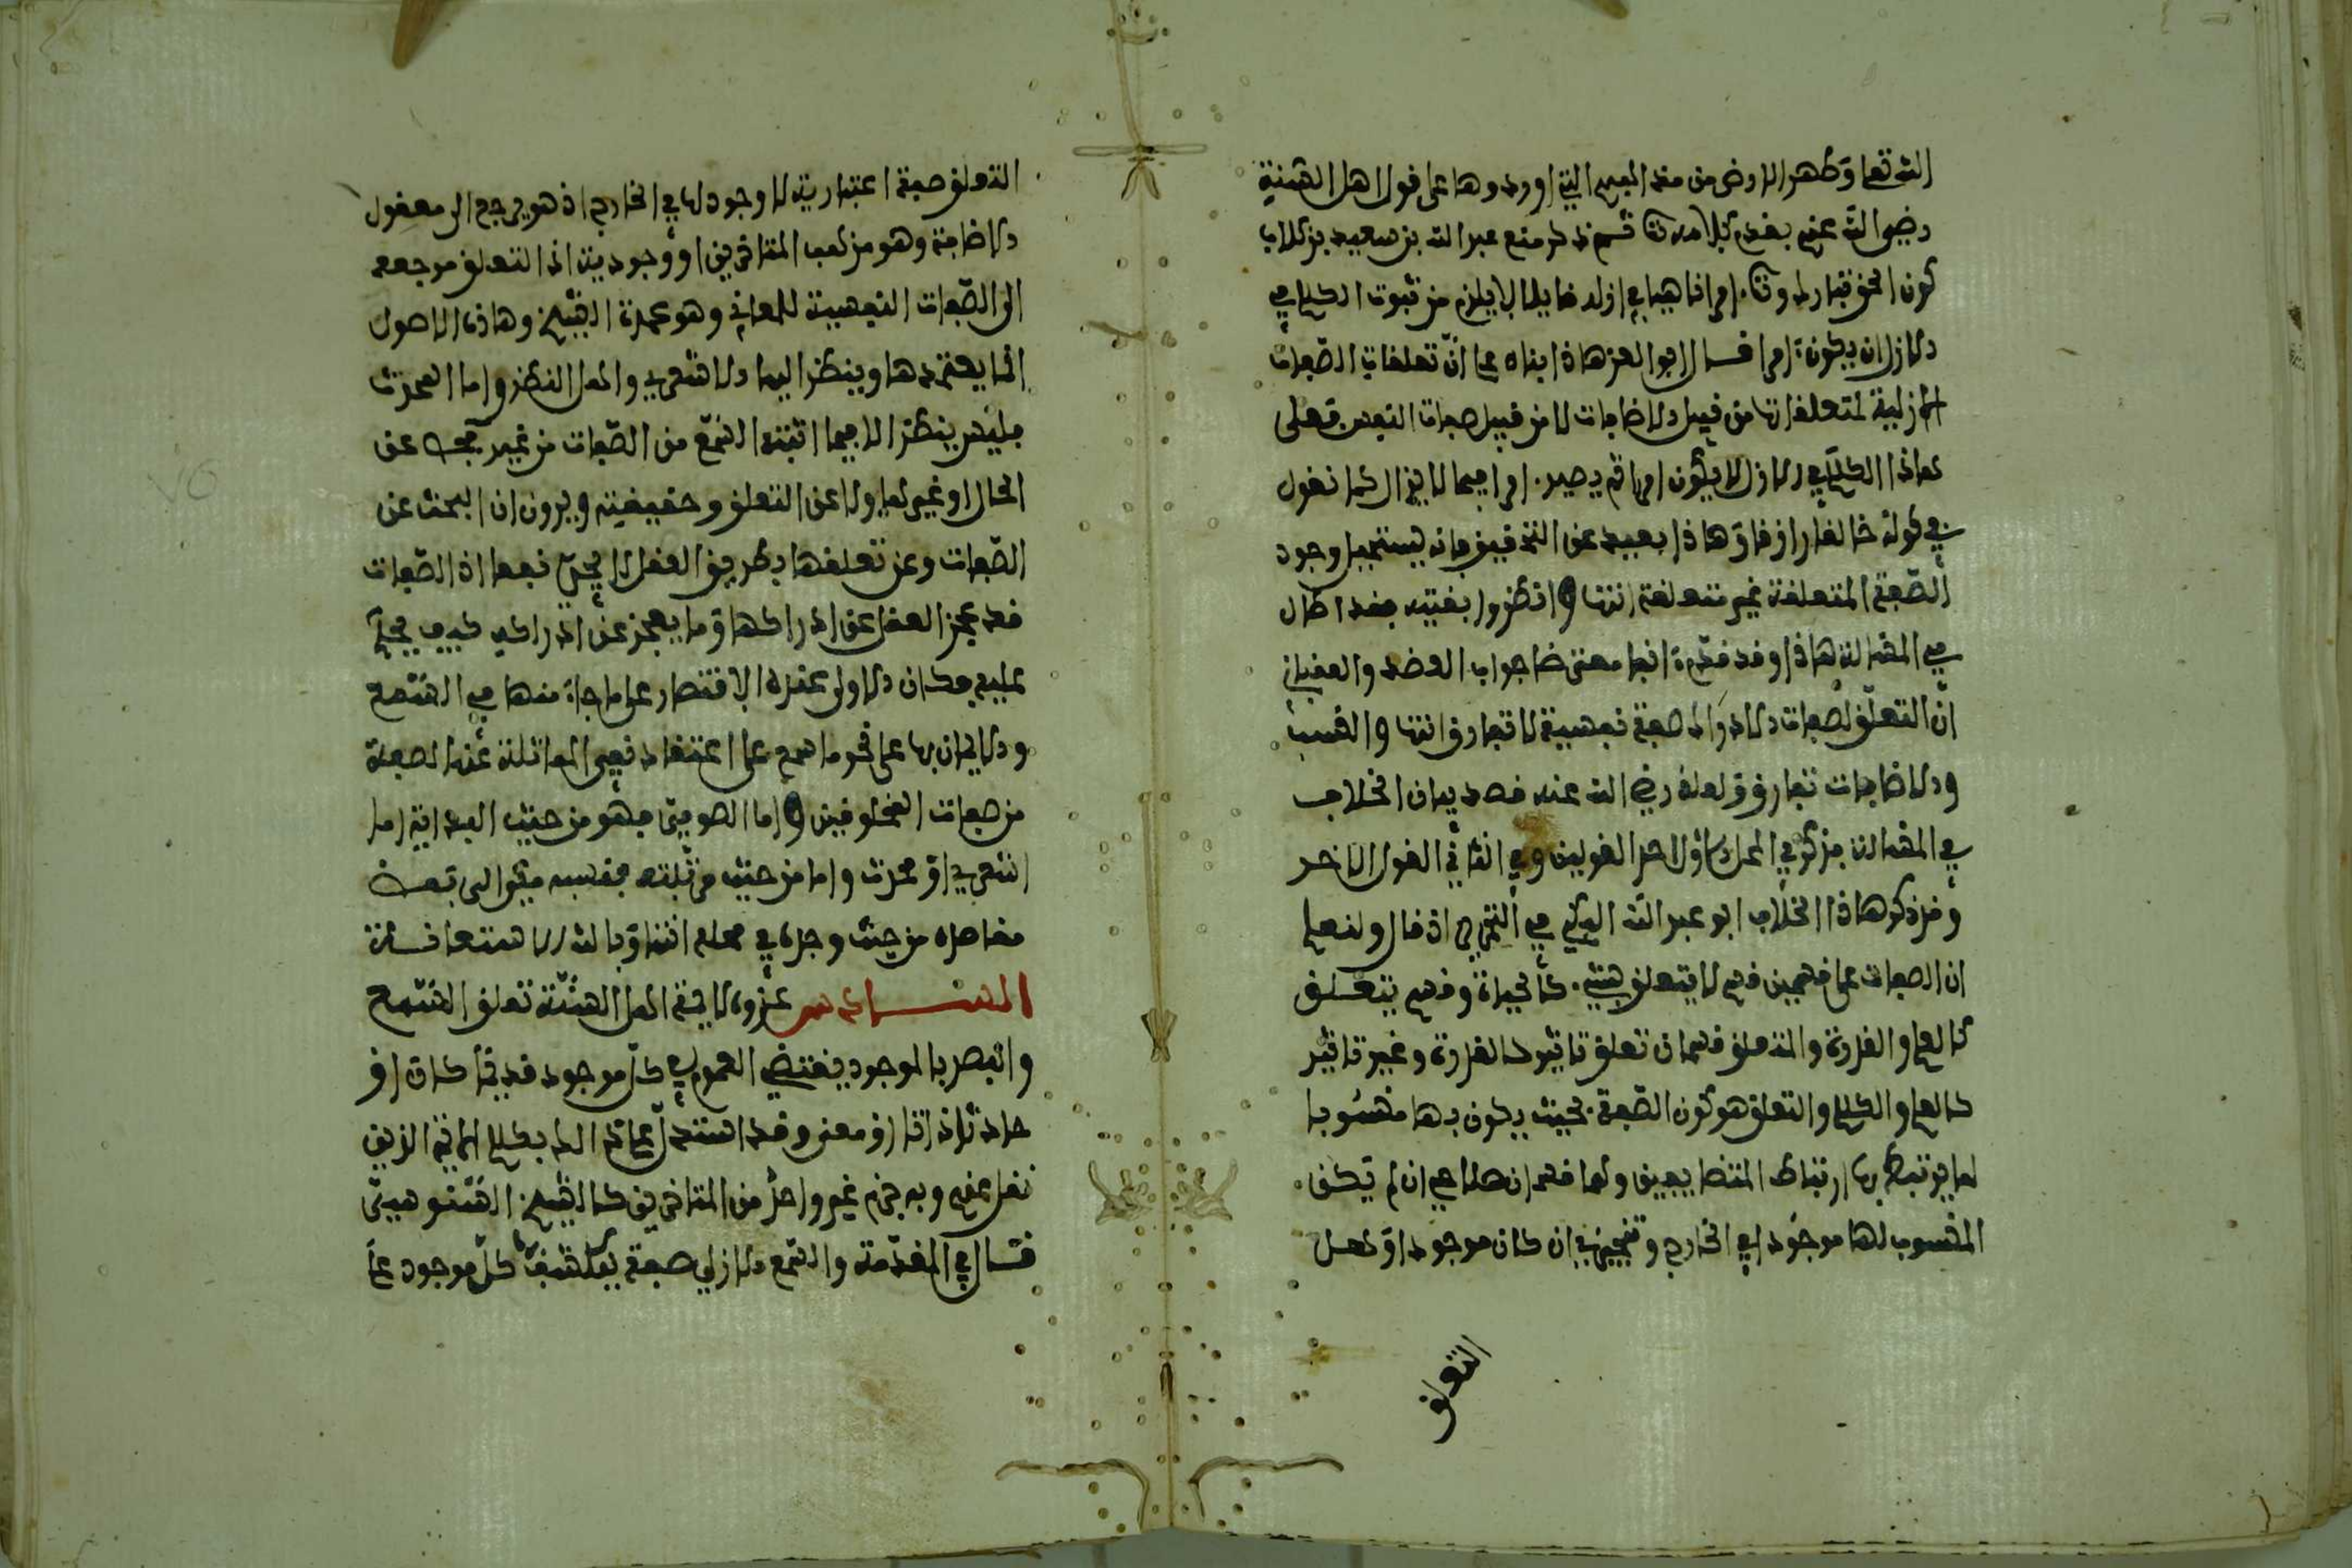 الله تعلى وطهر الارض من هذه البدع التي اوردوها على قول اهل السنة
رضي الله عنهم بقدم كلامه تعلى ثم ذكر منع عبد الله بن سعيد بن كلاب
كون الحق تبارك وتعلى امرا ناهيا في ازله قايلا لا يلزم من ثبوت الكلام في
الازل ان يكون امرا قال ابو العز هاذا بناه على ان تعلقات الصفات
الازلية لمتعلقاتها من قبيل الاضافات لا من قبيل صفات النفس فعلى
هاذا الكلام في الازل لا يكون امرا ثم يصير امرا فيما لا يزال كما نقول
في كونه خالقا رازقا وهاذا بعيد عن التحقيق فانه يستحيل وجود
الصفة المتعلقة غير متعلقة انتهى وانظر بقيته فقد اطال
في المسالة هاذا وقد قدمنا انها معنى جواب العضد والعقباني
ان التعلق لصفات الذوات صفة نفسية لا تفارق انتهى والنسب
والاضافات تفارق ولعله رضي الله عنه قصد بيان الخلاف
في المسالة فذكر في المحل الاول احد القولين وفي الثاني القول الاخر
وقد ذكر هاذا الخلاف ابو عبد الله البكي في التحرير اذ قال ولنعلم
ان الصفات على قسمين قسم لا يتعلق بشيء كالحياة وقسم يتعلق
كالعلم والقدرة والمتعلق قسمان تعلق تاثير كالقدرة وغير تاثير
كالعلم والكلام والتعلق هو كون الصفة بحيث يكون بها منسوبا
لما يرتبط بها ارتباط المتضايفين ولها قسمان صلاحي ان لم يكن
المنسوب لها موجودا في الخارج وتنجيزي ان كان موجودا وهل
التعلق
التعلق صفة اعتبارية لا وجود لها في الخارج اذ هو يرجع الى معقول
الاضافة وهو مذهب المتاخرين او وجودية اذ التعلق مرجعه
الى الصفات النفسية للمعاني وهو عمدة الشيخ وهاذه الاصول
انما يعتمدها وينظر اليها الاشعري واهل النظر واما المحدث
فليس ينظر الا فيما اثبته السمع من الصفات من غير بحث عن
الحال او غيرها ولا عن التعلق وحقيقته ويرون ان البحث عن
الصفات وعن تعلقها بطريق العقل لا يجدي نفعا اذ الصفات
قد عجز العقل عن ادراكها وما يعجز عن ادراكه كيف يحكم
عليه فكان الاولى عنده الاقتصار على ما جاء منها في السمع
والايمان بها على نحو ما سمع على اعتقاد نفي المماثلة عنه لصفة
من صفات المخلوقين واما الصوفي فهو من حيث البداية اما
اشعري او محدث واما من حيث مرتبته فنفسه متوالي تبعث
مقاصده من حيث وجدها في محلها انتهى وبالله الاستعانة
المسـالة عزوه لايمة اهل السنة تعلق السمع
والبصر بالموجود يقتضي العموم في كل موجود قديما كان او
حادثا ذاتا او معنى وقد استدل على ذلك بكلام الايمة الذين
نقل عنهم وبه جزم غير واحد من المتاخرين كالشيخ السنوسي
قال في المقدمة والسمع الازلي صفة ينكشف بها كل موجود على